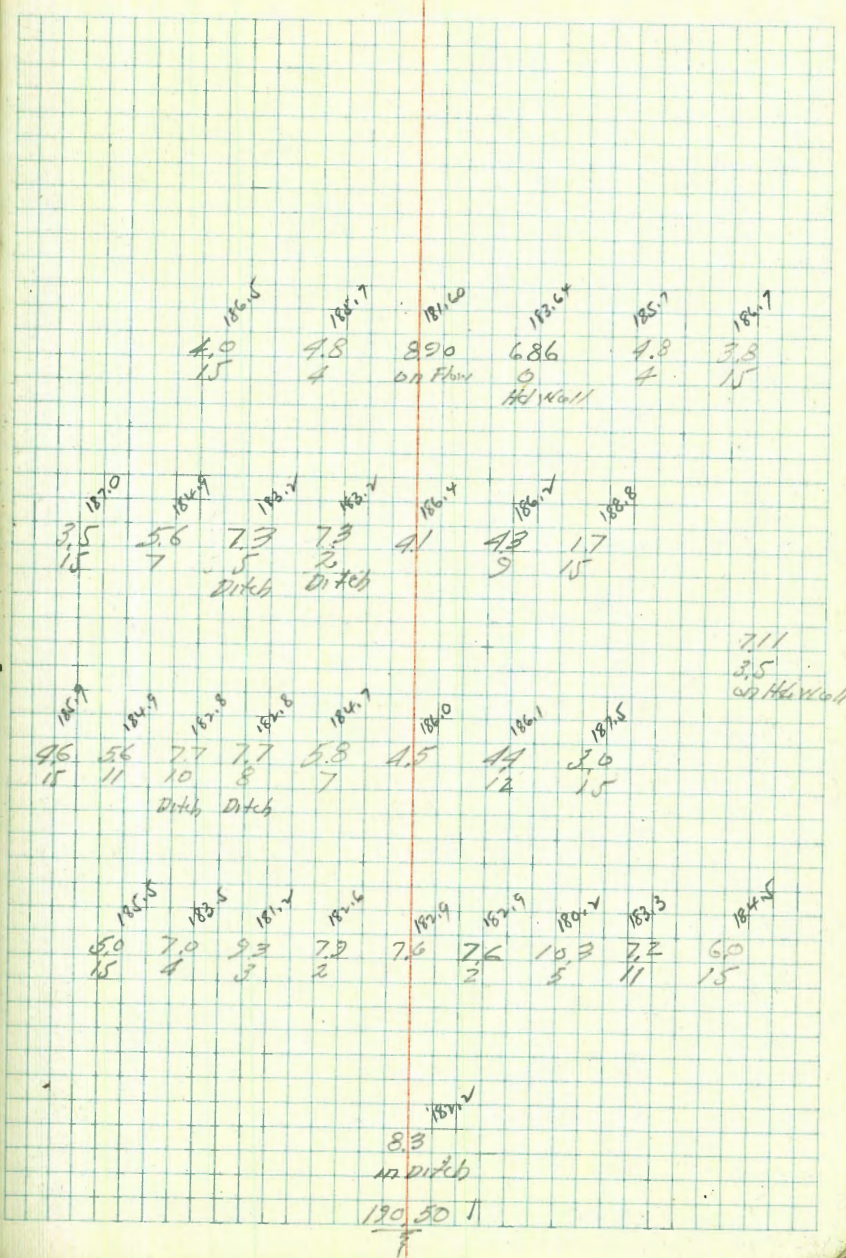 186.5 185.7 181.60 183.64 185.7 186.7
4.0 4.8 8.90 6.86 4.8 3.8
15 4 on Flow 0 4 15
Hd Wall
187.0 184.9 183.2 183.2 186.4 186.2 188.8
3.5 5.6 7.3 7.3 4.1 4.3 1.7
15 7 5 2 9 15
Ditch Ditch
7.11
3.5
on Hd Wall
185.9 184.9 182.8 182.8 184.7 186.0 186.1 187.5
4.6 5.6 7.7 7.7 5.8 4.5 4.4 3.0
15 11 10 8 7 12 15
Ditch Ditch
185.5 183.5 181.2 182.6 182.9 182.9 180.2 183.3 184.5
5.0 7.0 9.3 7.9 7.6 7.6 10.3 7.2 6.0
15 4 3 2 2 5 11 15
182.2
8.3
in Ditch
190.50